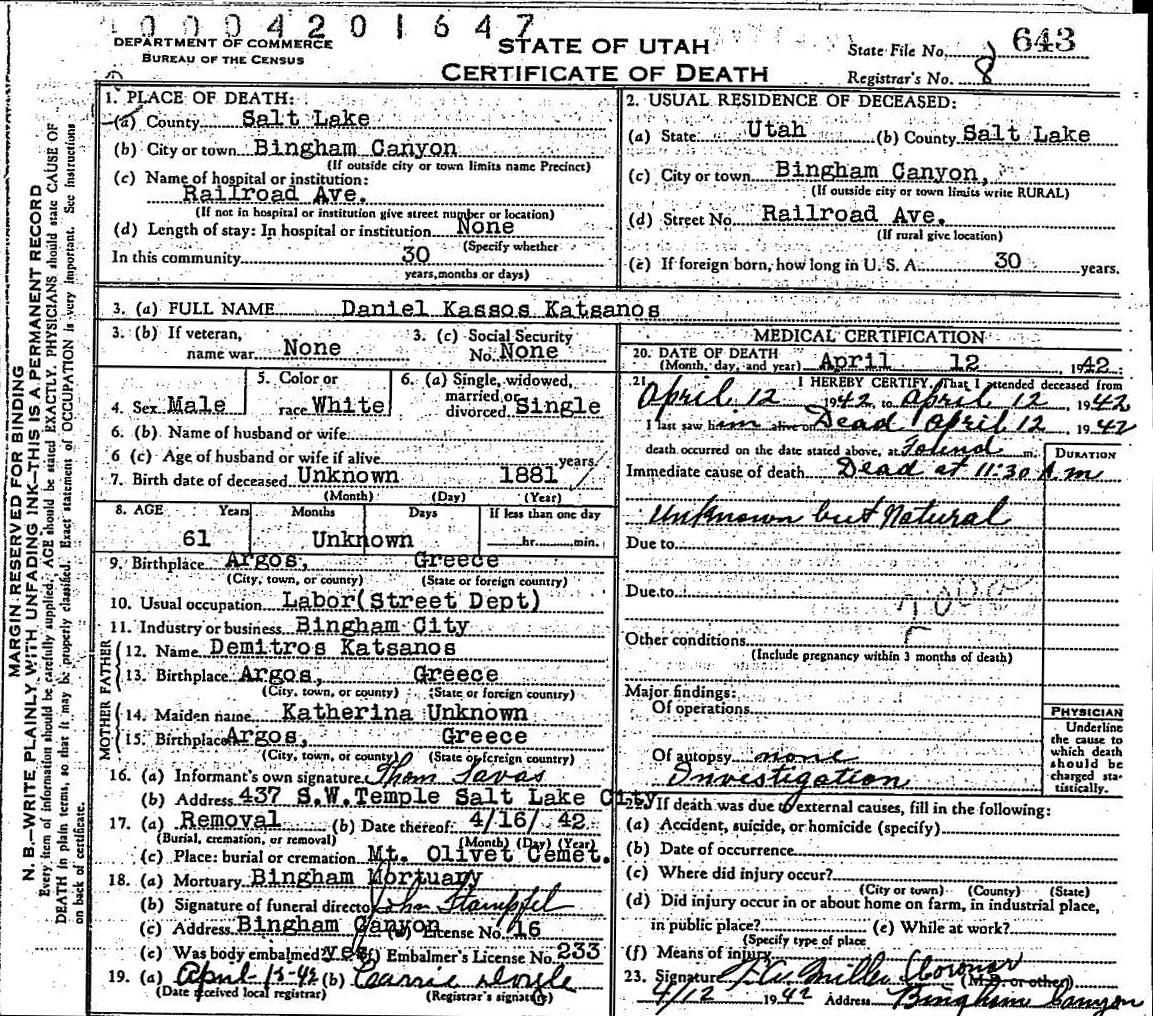 0004201647
DEPARTMENT OF COMMERCE
BUREAU OF THE CENSUS
STATE OF UTAH
CERTIFICATE OF DEATH
State File No. 643
Registrar's No. 8
MARGIN RESERVED FOR BINDING
N. B.—WRITE PLAINLY WITH UNFADING INK—THIS IS A PERMANENT RECORD
Every item of information should be carefully supplied. AGE should be stated EXACTLY. PHYSICIANS should state CAUSE OF
DEATH in plain terms, so that it may be properly classified. Exact statement of OCCUPATION is very important. See instructions
on back of certificate.
1. PLACE OF DEATH:
(a) County Salt Lake
(b) City or town Bingham Canyon
(If outside city or town limits name Precinct)
(c) Name of hospital or institution:
Railroad Ave.
(If not in hospital or institution give street number or location)
(d) Length of stay: In hospital or institution None
(Specify whether
In this community 30
years, months or days)
2. USUAL RESIDENCE OF DECEASED:
(a) State Utah (b) County Salt Lake
(c) City or town Bingham Canyon,
(If outside city or town limits write RURAL)
(d) Street No. Railroad Ave.
(If rural give location)
(e) If foreign born, how long in U. S. A. 30 years.
3. (a) FULL NAME Daniel Kassos Katsanos
3. (b) If veteran, 3. (c) Social Security
name war None No. None
4. Sex Male
5. Color or
race White
6. (a) Single, widowed,
married, or
divorced Single
6. (b) Name of husband or wife
6 (c) Age of husband or wife if alive years
7. Birth date of deceased Unknown 1881
(Month) (Day) (Year)
8. AGE Years Months Days If less than one day
61 Unknown hr. min.
9. Birthplace Argos, Greece
(City, town, or county) (State or foreign country)
10. Usual occupation Labor(Street Dept)
11. Industry or business Bingham City
FATHER
12. Name Demitros Katsanos
13. Birthplace Argos, Greece
(City, town, or county) (State or foreign country)
MOTHER
14. Maiden name Katherina Unknown
15. Birthplace Argos, Greece
(City, town, or county) (State or foreign country)
16. (a) Informant's own signature Thom Savas
(b) Address 437 S.W.Temple Salt Lake City
17. (a) Removal (b) Date thereof 4/16/ 42
(Burial, cremation, or removal) (Month) (Day) (Year)
(c) Place: burial or cremation Mt. Olivet Cemet.
18. (a) Mortuary Bingham Mortuary
(b) Signature of funeral director John Stampfel
(c) Address Bingham Canyon License No. 16
(e) Was body embalmed? yes Embalmer's License No. 233
19. (a) April-13-42 (b) Carrie
(Date received local registrar) (Registrar's signature)
MEDICAL CERTIFICATION
20. DATE OF DEATH
(Month, day, and year) April 12 , 1942.
21. I HEREBY CERTIFY, That I attended deceased from
April 12 1942, to April 12 , 1942
I last saw him alive on Dead April 12 , 1942
death occurred on the date stated above, at Found m.
DURATION
Immediate cause of death Dead at 11:30 A.m
Unknown but Natural
Due to
Due to
Other conditions
(Include pregnancy within 3 months of death)
Major findings:
Of operations
Of autopsy none
Investigation
PHYSICIAN
Underline
the cause to
which death
should be
charged sta-
tistically.
22. If death was due to external causes, fill in the following:
(a) Accident, suicide, or homicide (specify)
(b) Date of occurrence
(c) Where did injury occur?
(City or town) (County) (State)
(d) Did injury occur in or about home on farm, in industrial place,
in public place? (e) While at work?
(Specify type of place
(f) Means of injury
23. Signature Miller Coronar (M.D. or other)
4/12 1942 Address Bingham Canyon